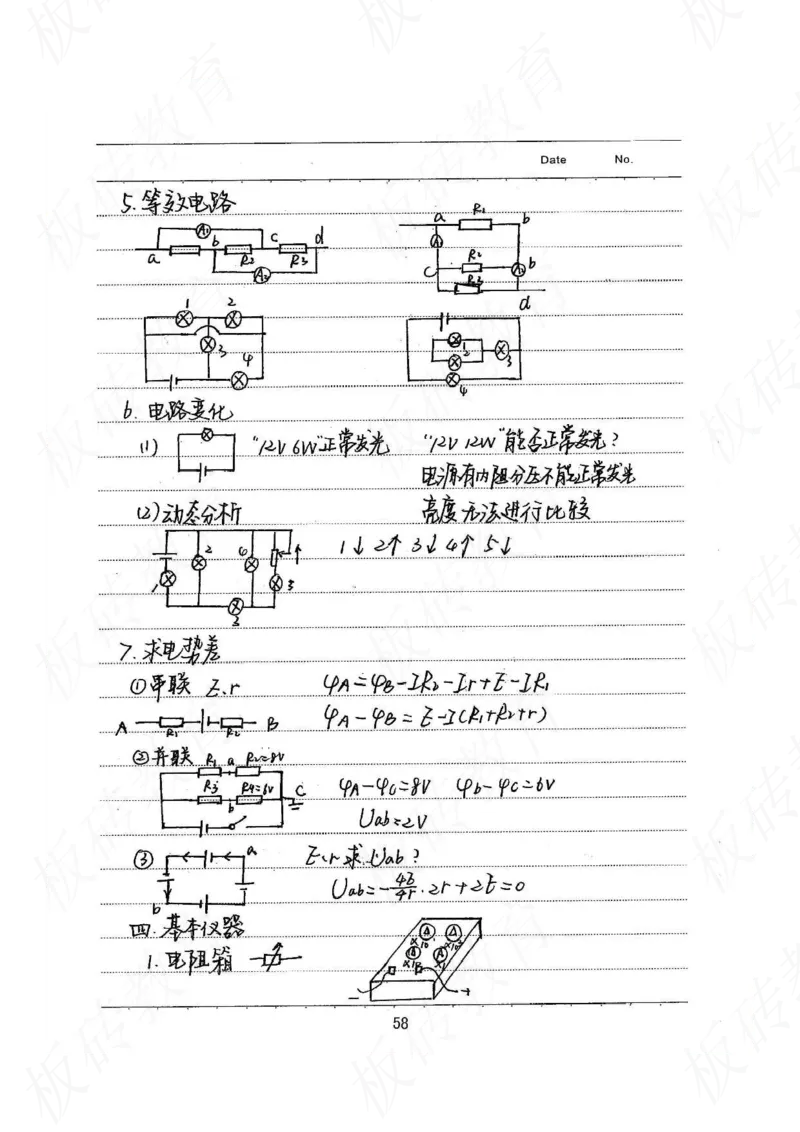 Date No.
5.等效电路
A1 a b R2 c R3 d A2
a R1 b A1 c R2 A2 b R3 d
1 2 3 4
1 2 3 4
6.电路变化
(1) "12V 6W"正常发光 "12V 12W"能否正常发光?
电源有内阻分压不能正常发光
(2)动态分析 亮度无法进行比较
1 2 6 3 5 1↓ 2↑ 3↓ 4↑ 5↓
7.求电势差
①串联 E.r φA=φB-IR2-Ir+E-IR1
A R1 R2 B φA-φB=E-I(R1+R2+r)
②并联 R1 a R2=8V
R3 R4=6V b C φA-φC=8V φb-φC=6V
Uab=2V
③ a b E.r求Uab?
Uab=-4E/4r·2r+2E=0
四.基本仪器
1.电阻箱
- +
58
板砖教育